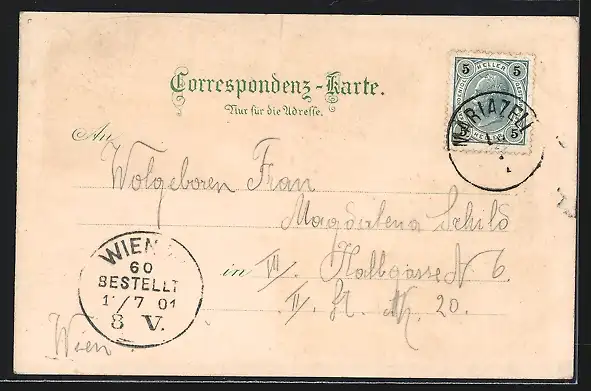 Correspondenz-Karte.
Nur für die Adresse.
5 HELLER 5
5 HELLER 5
MARIAZELL
An
Wolgeboren Frau
Magdalena Schild
in VII/ Halbgasse N 6
II/ St. N. 20.
WIEN
60
BESTELLT
1/7 01
8 V.
Wien